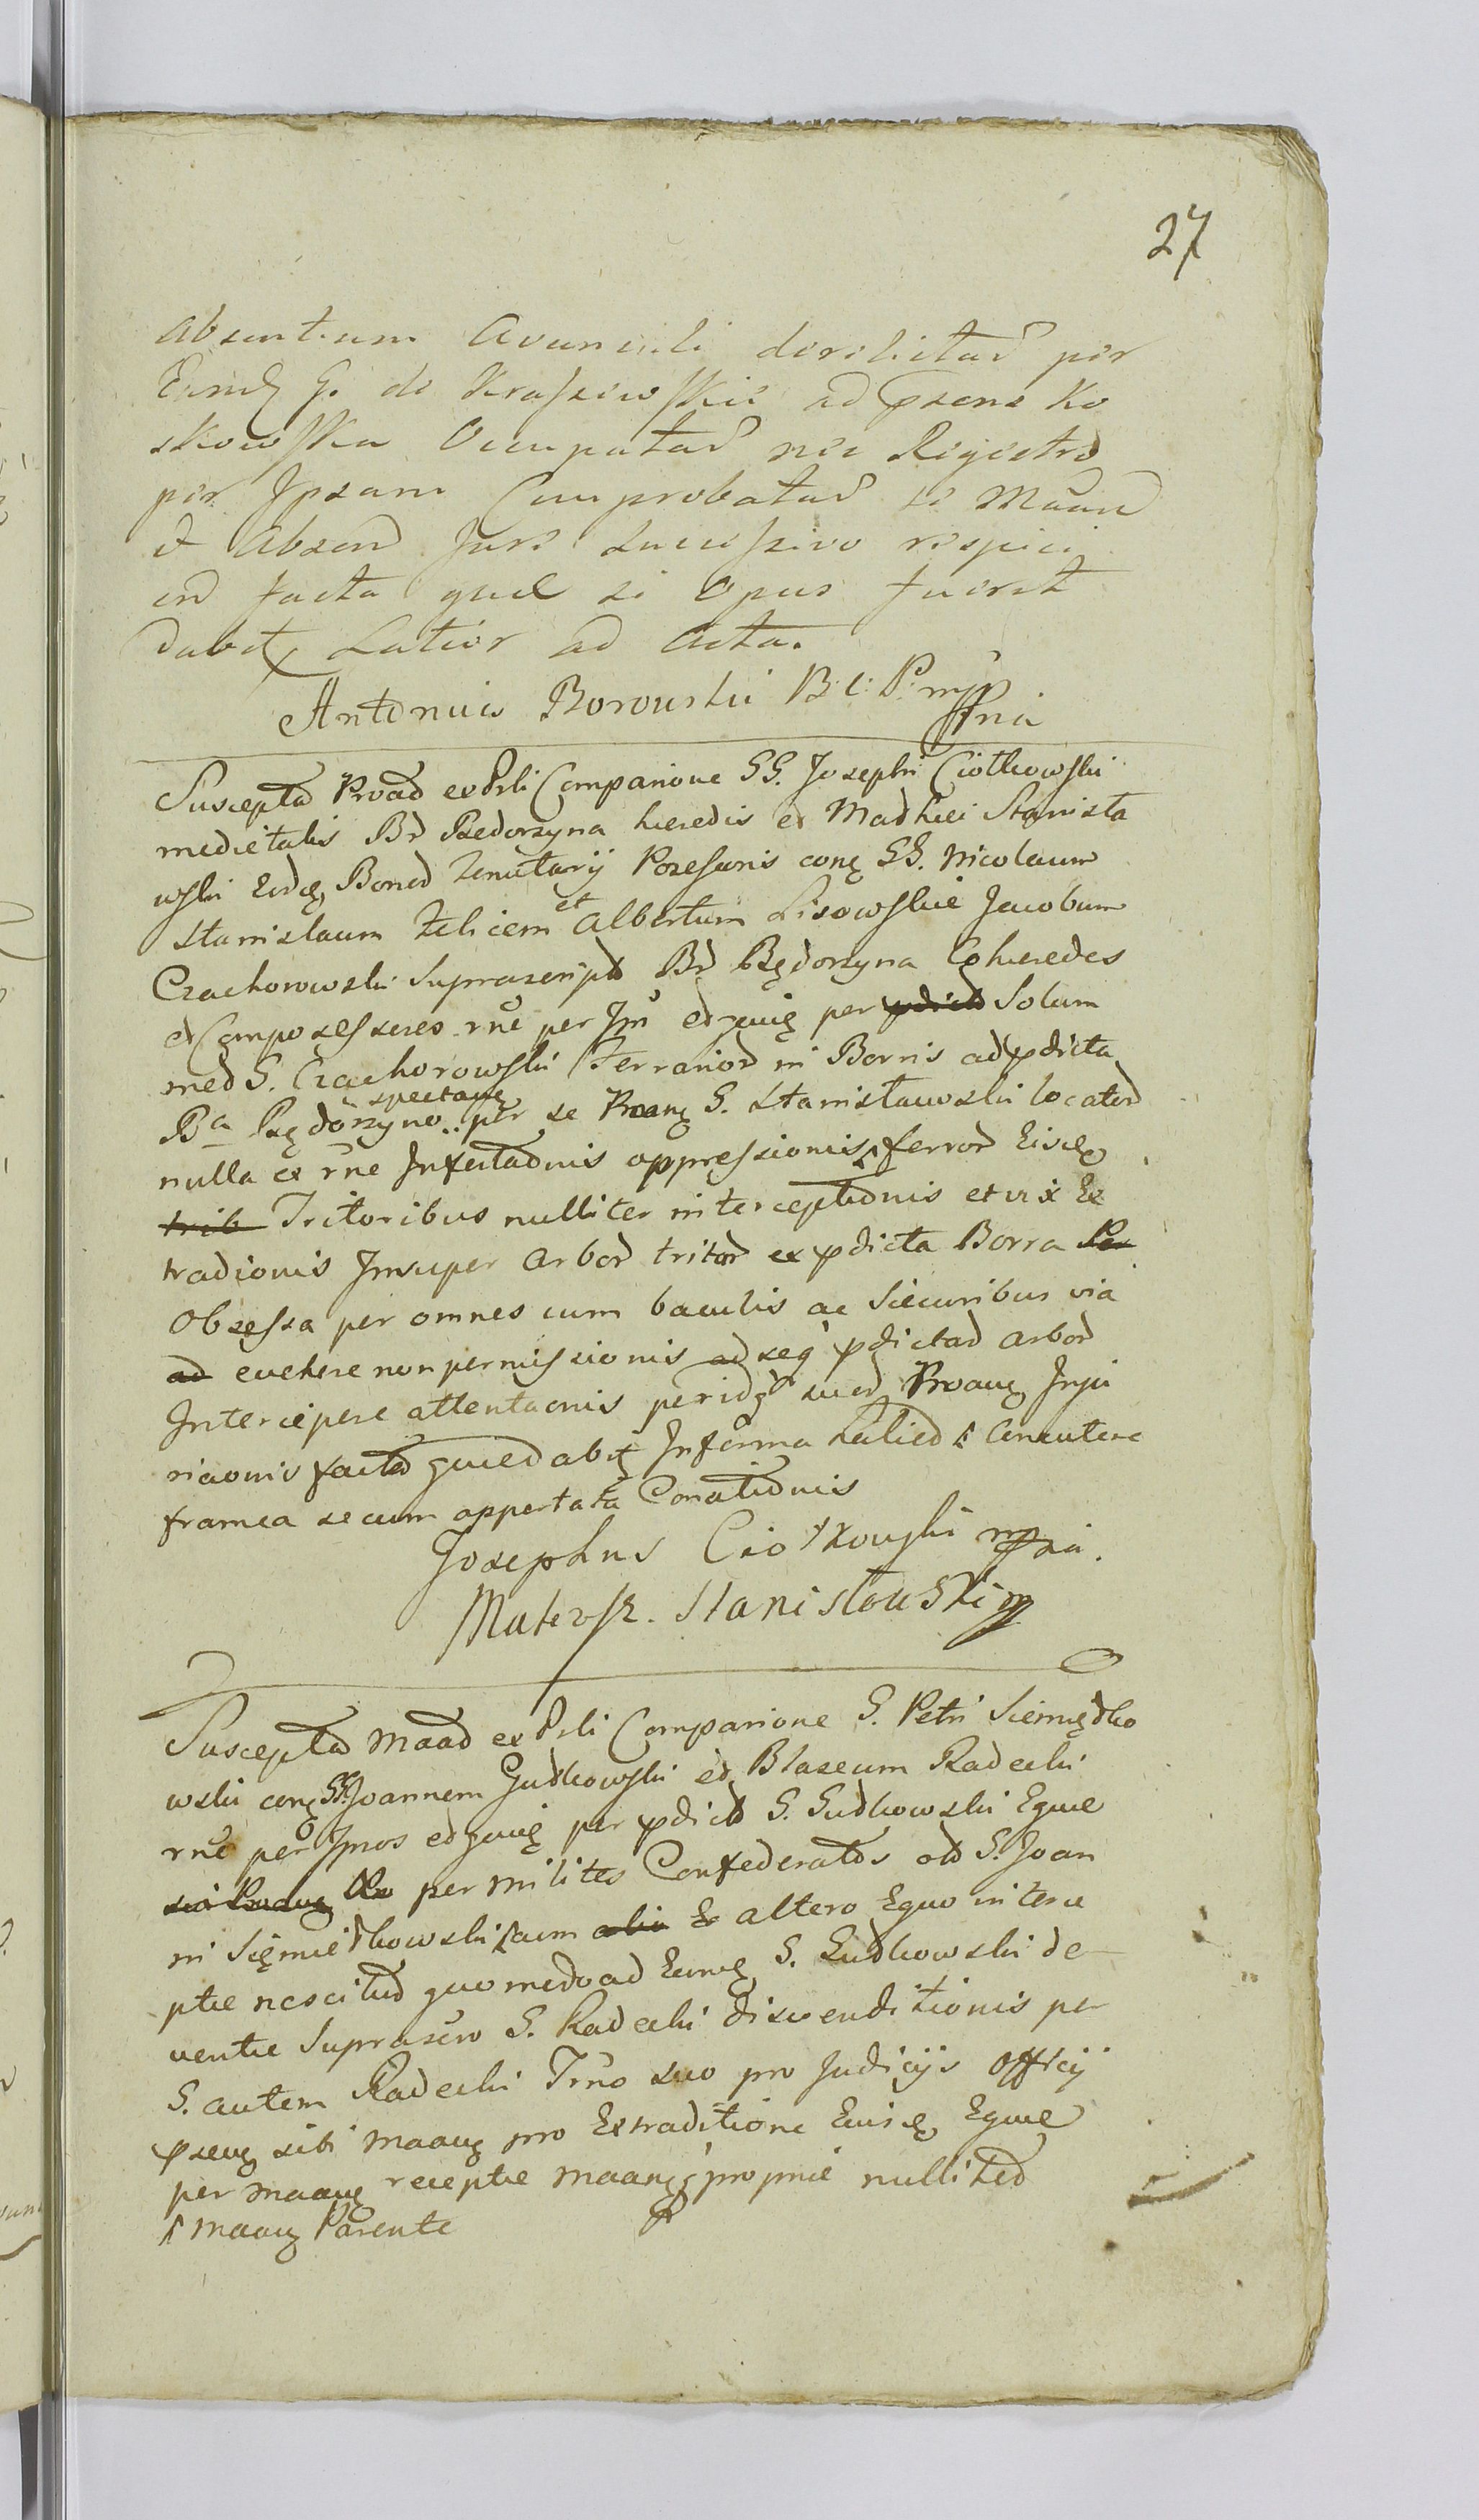 27
Absentium Avunculi derelictad per
Eund G. de Kraszewskie ad psens Ko
skowska Occupatad nec Registro
per Ipsam Comprobatad se Maand
et Absend Jure Successivo respici
end facta quae si Opus fuerit
dabit Latior ad Acta.
Antonius Borowski B: C: P: mpp
Suscepta Proad ex Prli Comparione GG. Josephi Ciółkowski
medietatis Bd Będorzyna heredis et Mathiei Stanisła
wski Eorde Bonod Tenutarij Possesoris conq GG. Nicolaum
Stanislaum Felicem et Albertum Lisowskie Jacobum
Czachorowski Suprascript Bd Będorzyna Cohæredes
et Compossessores rne per Im et quiq per pdictd Solum
med G. Czachorowski Terranod in Borris ad pdicta
Ba Będorzyno spectanq per se Proanq G. Stanisławski locatod
nulla ex rne Infestadnis oppressionis ferrod Eisde
trib Tritoribus nulliter interceptionis et vix Ex
tradionis Insuper arbod tritod ex pdicta Borra Per
Obsessa per omnes cum baculis ac Securibus via
ad evehere non permissionis ad seq pdictad arbod
Intercipere attentaonis per idq sued Proanq Inju
riaonis facta quæ dabit In forma Latied Concutere
framea secum apportata Conationis
Josephus Ciołkowski mpria.
Mateusz. Stanisławski mp
Suscepta Maad ex Prli Comparione G. Petri Siemiędko
wski conq GG. Joannem Gudkowski et Blaseum Radecki
rne per Imos et quiq per pdictd G. Gudkowski Equæ
per milites Confederatos od G. Joan
ni Siemiedkowski cum alio Ex altero Equo interce
ptæ nescitud quomodo ad Eunq G. Gudkowski de
ventæ Suprascro G. Radecki disvenditionis per
G. autem Radecki Trno suo pro Judicijs Officij
psenq sibi Maanq pro Extraditione Eiusde Equæ
per Maanq receptæ Maanq propriæ nullited
Maanq Parente